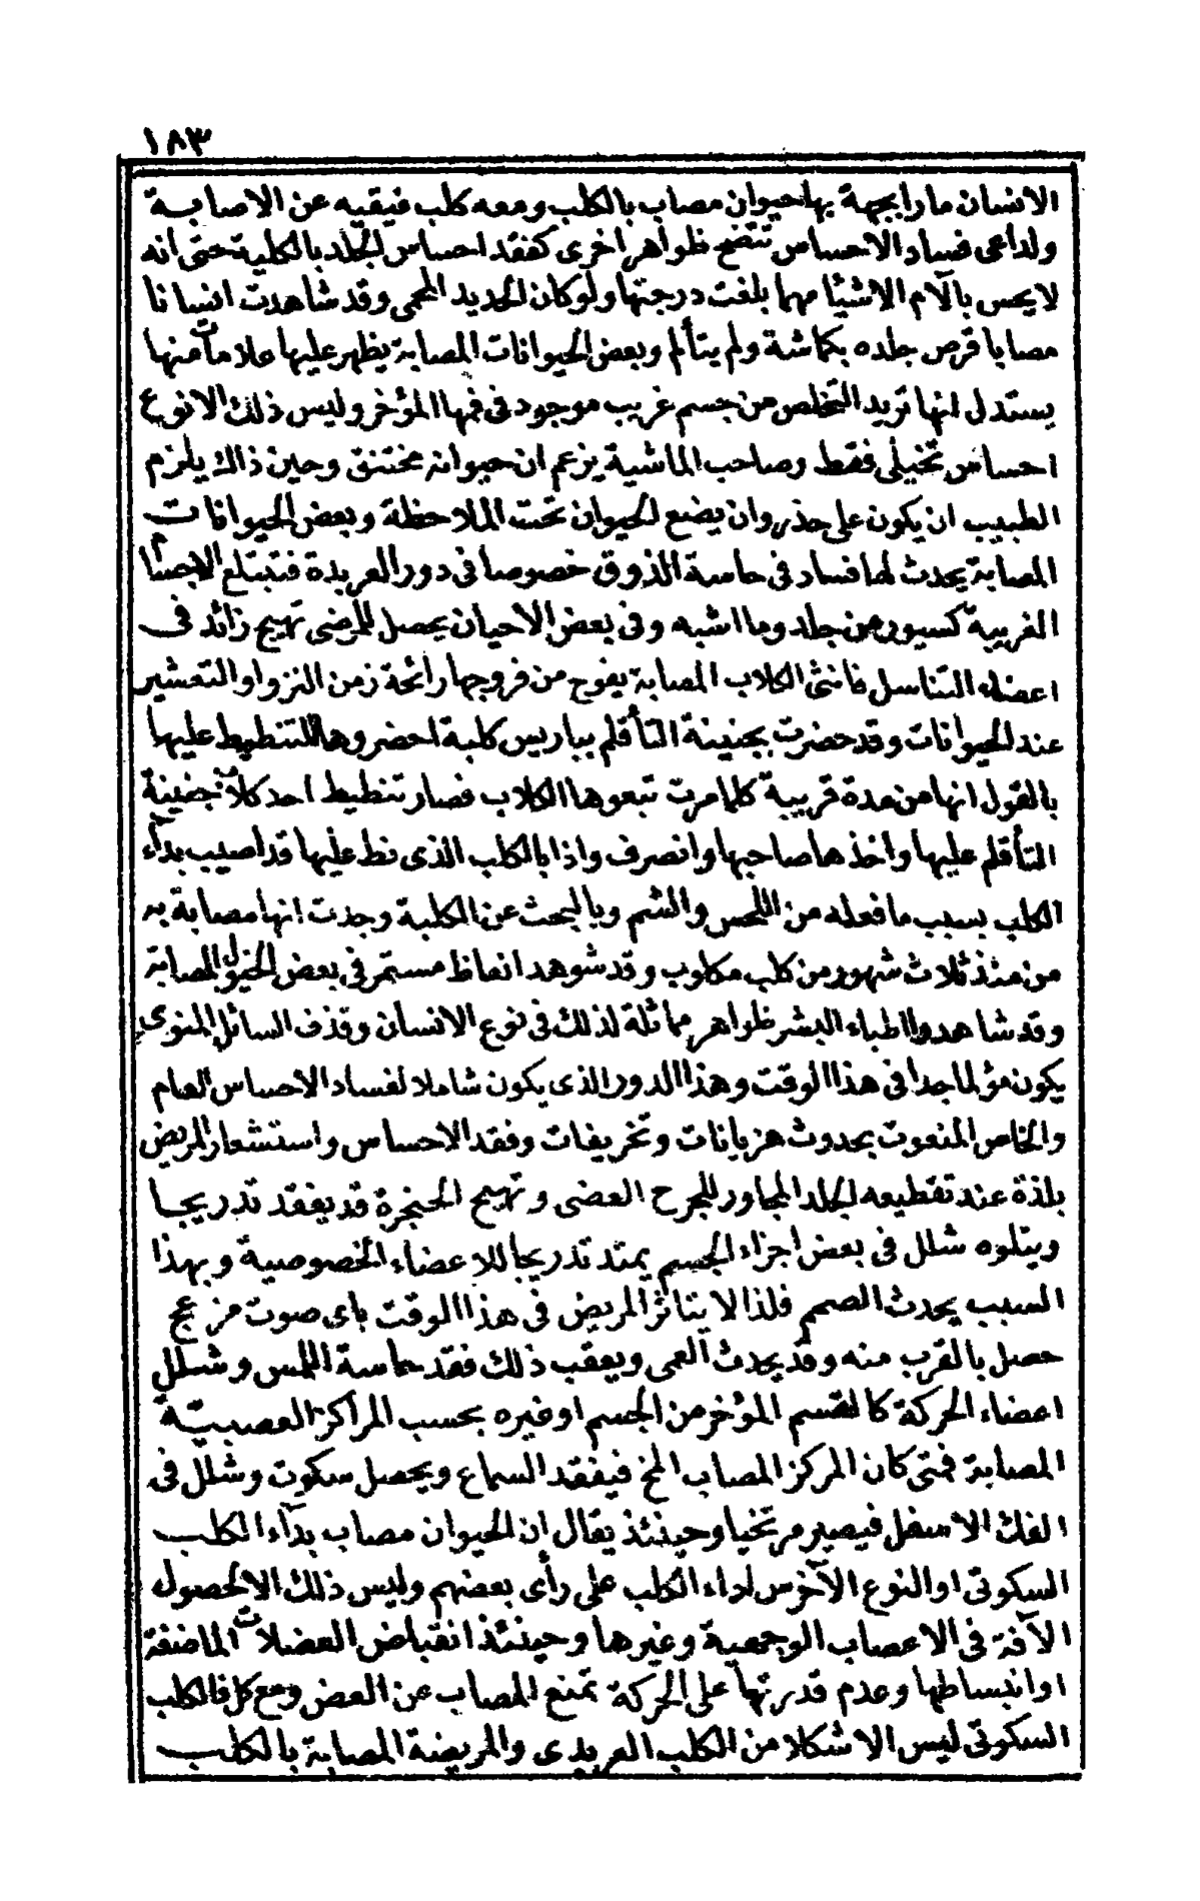 ١٨٣
الانسان مارا بجهة بها حيوان مصاب بالكلب ومعه كلب فيقيه عن الاصابة
ولداعى فساد الاحساس تتضح ظواهر اخرى كفقد احساس الجلد بالكلية حتى انه
لا يحس بآلام الاشيا مهما بلغت درجتها ولو كان الحديد المحمى وقد شاهدت انسانا
مصابا قرص جلده بكماشة ولم يتألم وبعض الحيوانات المصابة يظهر عليها علامات منها
يستدل انها تريد التخلص من جسم غريب موجود فى فمها المؤخر وليس ذلك الا نوع
احساس تخيلى فقط وصاحب الماشية يزعم ان حيوانه مختنق وحين ذاك يلزم
الطبيب ان يكون على حذر وان يضع الحيوان تحت الملاحظة وبعض الحيوانات
المصابة يحدث لها فساد فى حاسة الذوق خصوصا فى دور العربدة فتبتلع الاجسام
الغريبة كسيور من جلد وما اشبه وفى بعض الاحيان يحصل للمرضى تهيج زائد فى
اعضاء التناسل فانثى الكلاب المصابة يفوح من فروجها رائحة زمن النزو او التعشير
عند الحيوانات وقد حضرت بجنينة التأقلم بباريس كلبة احضروها للتنطيط عليها
بالقول انها من مدة قريبة كلما مرت تبعوها الكلاب فصار تنطيط احد كلاب جنينة
التأقلم عليها واخذها صاحبها وانصرف واذا بالكلب الذى نط عليها قد اصيب بدآء
الكلب بسبب ما فعله من اللحس والشم وبالبحث عن الكلبة وجدت انها مصابة به
من منذ ثلاث شهور من كلب مكلوب وقد شوهد انعاظ مستمر فى بعض الخيول المصابة
وقد شاهدوا اطباء البشر ظواهر مماثلة لذلك فى نوع الانسان وقذف السائل المنوى
يكون مؤلما جدا فى هذا الوقت وهذا الدور الذى يكون شاملا لفساد الاحساس العام
والخاص المنعوت بحدوث هزيانات وتخريفات وفقد الاحساس واستشعار المريض
بلذة عند تقطيعه الجلد المجاور للجرح العضى وتهيج الحنجرة قد يفقد تدريجا
ويتلوه شلل فى بعض اجزاء الجسم يمتد تدريجا للاعضاء الخصوصية وبهذا
السبب يحدث الصمم فلذا لا يتاثر المريض فى هذا الوقت باى صوت مزعج
حصل بالقرب منه وقد يحدث العمى ويعقب ذلك فقد حاسة اللمس وشلل
اعضاء الحركة كالقسم المؤخر من الجسم او غيره بحسب المراكز العصبيّة
المصابة فمتى كان المركز المصاب المخ فيفقد السماع ويحصل سكوت وشلل فى
الفك الاسفل فيصير مرتخيا وحينئذ يقال ان الحيوان مصاب بدآء الكلب
السكوتى او النوع الآخرس لداء الكلب على رأى بعضهم وليس ذلك الا لحصول
الآفة فى الاعصاب الوجمعية وغيرها وحينئذ انقباض العضلات الماضغة
او انبساطها وعدم قدرتها على الحركة تمنع المصاب عن العض ومع كل فالكلب
السكوتى ليس الا شكلا من الكلب العربدى والمريضة المصابة بالكلب